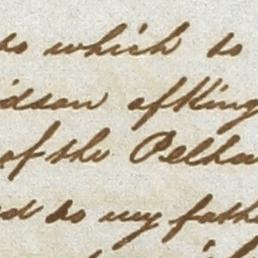 to which to
idson of King
of the Pelha
d to my fathe